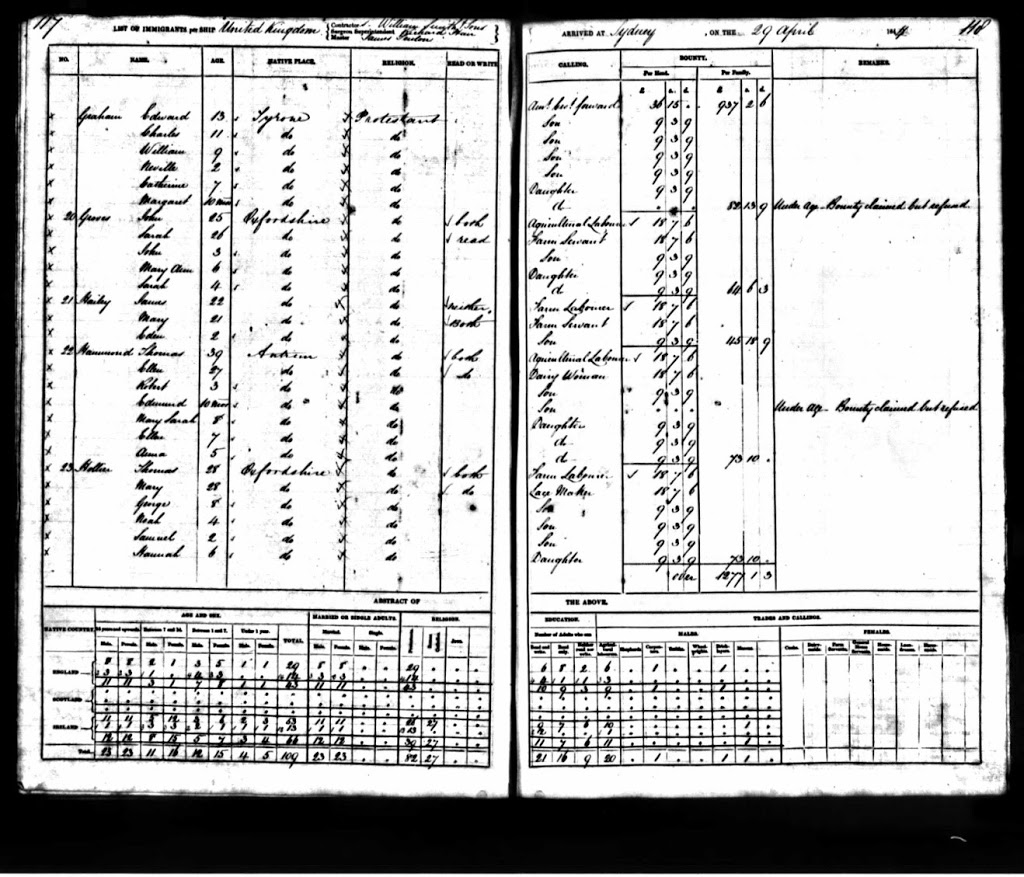 117
LIST OF IMMIGRANTS per SHIP United Kingdom
Contractors William Smith & Sons
Surgeon Superintendent Richard
Master James
NO. NAME. AGE. NATIVE PLACE. RELIGION. READ OR WRITE
Graham Edward 13 Tyrone Protestant
Charles 11 do do
William 9 do do
Neville 2 do do
Catherine 7 do do
Margaret 10 mos do do
20 Groves John 25 Oxfordshire do both
Sarah 26 do do read
John 3 do do
Mary Ann 6 do do
Sarah 4 do do
21 Hailey James 22 do do neither
Mary 21 do do Both
Eden 2 do do
22 Hammond Thomas 39 Antrim do both
Ellen 27 do do do
Robert 3 do do
Edmund 10 mos do do
Mary Sarah 8 do do
Ellen 7 do do
Anna 5 do do
23 Hollier Thomas 28 Oxfordshire do both
Mary 28 do do do
George 8 do do
Noah 4 do do
Samuel 2 do do
Hannah 6 do do
ABSTRACT OF
NATIVE COUNTRY. AGE AND SEX. MARRIED OR SINGLE ADULTS. RELIGION.
14 years and upwards. Between 7 and 14. Between 1 and 7. Under 1 year. TOTAL. Married. Single.
Male. Female. Male. Female. Male. Female. Male. Female. Male. Female. Male. Female. Protestants. Roman Catholics. Jews.
ENGLAND
8 8 2 1 3 5 1 1 29 8 8 29
SCOTLAND
IRELAND
12 12 8 15 5 7 3 4 66 12 12 39 27
Total 23 23 11 16 12 15 4 5 109 23 23 82 27
118
ARRIVED AT Sydney, ON THE 29 April 1844
CALLING. BOUNTY. REMARKS.
Per Head. Per Family.
£ s. d. £ s. d.
Amt. brot. forward 36 15 . 937 2 6
Son 9 3 9
Son 9 3 9
Son 9 3 9
Son 9 3 9
Daughter 9 3 9
do . . . 82 13 9 Under Age - Bounty claimed but refused
Agricultural Labourer 18 7 6
Farm Servant 18 7 6
Son 9 3 9
Daughter 9 3 9
do 9 3 9 64 6 3
Farm Labourer 18 7 6
Farm Servant 18 7 6
Son 9 3 9 45 18 9
Agricultural Labourer 18 7 6
Dairy Woman 18 7 6
Son 9 3 9
Son . . . Under Age - Bounty claimed but refused
Daughter 9 3 9
do 9 3 9
do 9 3 9 73 10 .
Farm Labourer 18 7 6
Lace Maker 18 7 6
Son 9 3 9
Son 9 3 9
Son 9 3 9
Daughter 9 3 9 73 10 .
over 1277 1 3
THE ABOVE.
EDUCATION. TRADES AND CALLINGS.
Number of Adults who can MALES. FEMALES.
Read and write. Read only. Neither read nor write. Shepherds.
6 8 2 6 . 1 . . 1 .
10 9 3 9 . 1 . . 1 .
11 7 6 11 . . . . . 1
21 16 9 20 . 1 . . 1 1